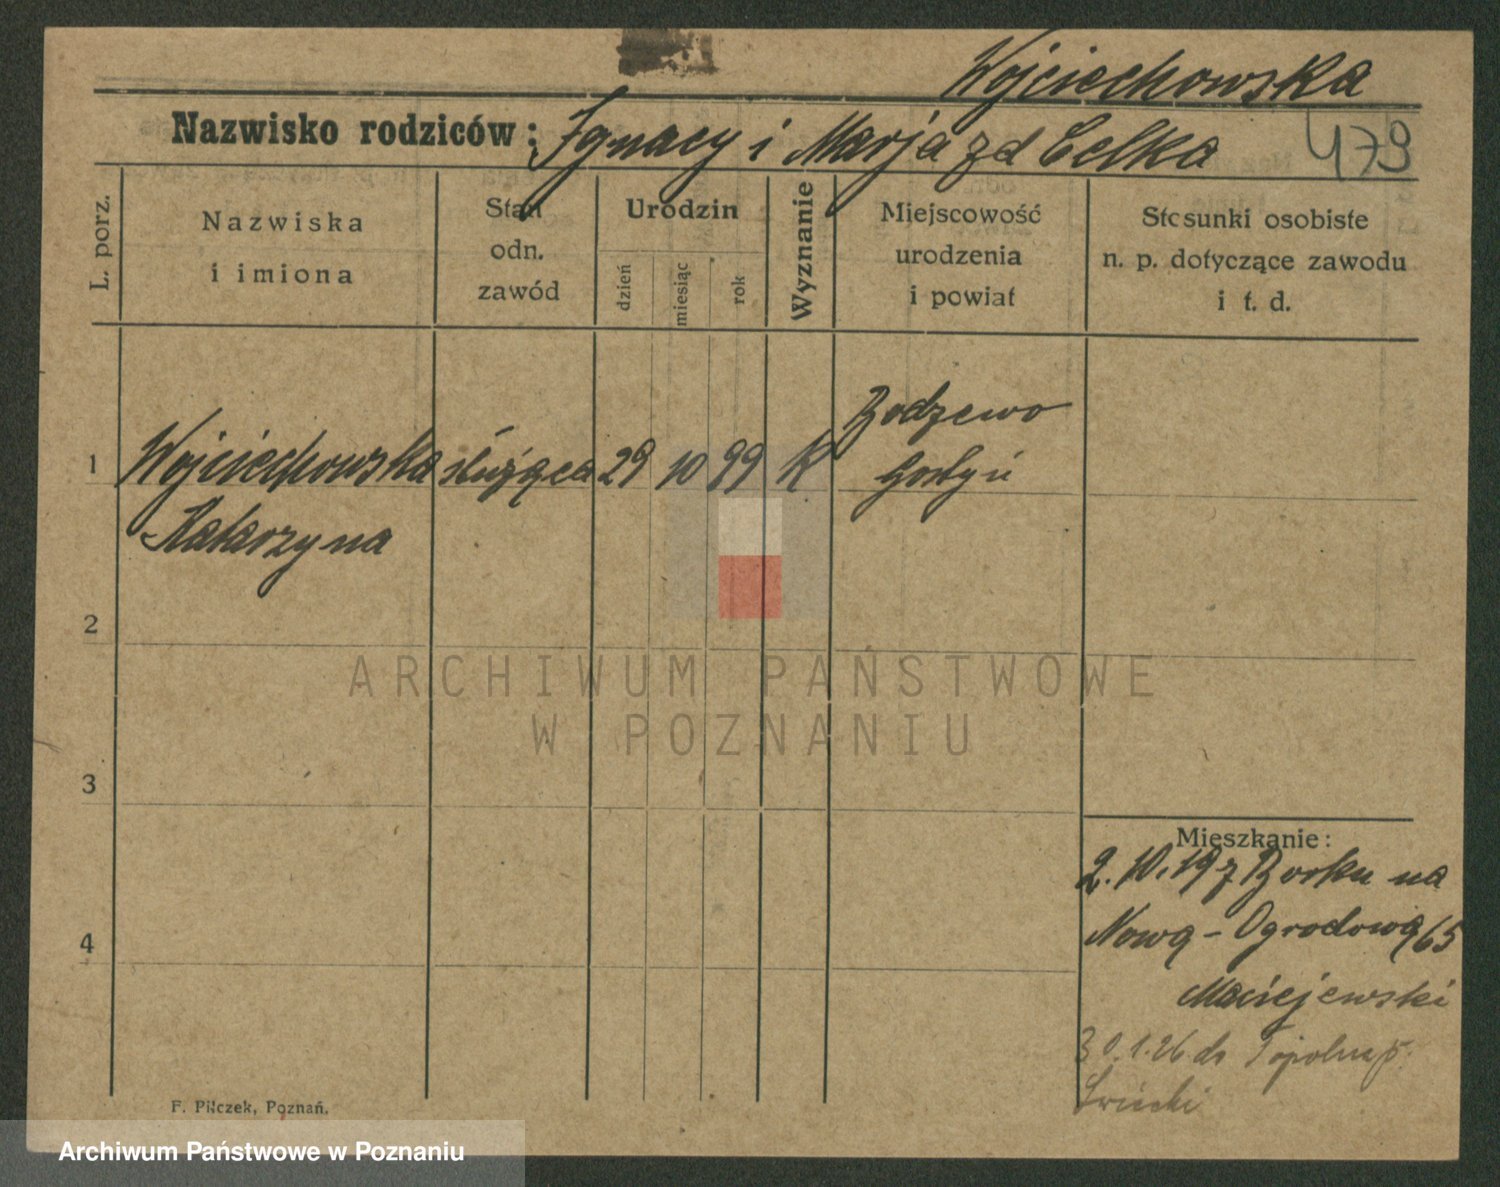 Wojciechowska
Nazwisko rodziców: Ignacy i Marja zd Celka
479
L. porz.
Nazwiska
i imiona
Stan
odn.
zawód
Urodzin
dzień
miesiąc
rok
Wyznanie
Miejscowość
urodzenia
i powiat
Stosunki osobiste
n. p. dotyczące zawodu
i t. d.
1
Wojciechowska służąca 29 10 99 K Bodzewo
Gostyń
Katarzyna
2
3
4
ARCHIWUM PAŃSTWOWE
W POZNANIU
Mieszkanie:
2.10.19 z Borku na
Nową-Ogrodową 65
Maciejewski
30.1.26 do Topolna p.
F. Pilczek, Poznań.
Archiwum Państwowe w Poznaniu